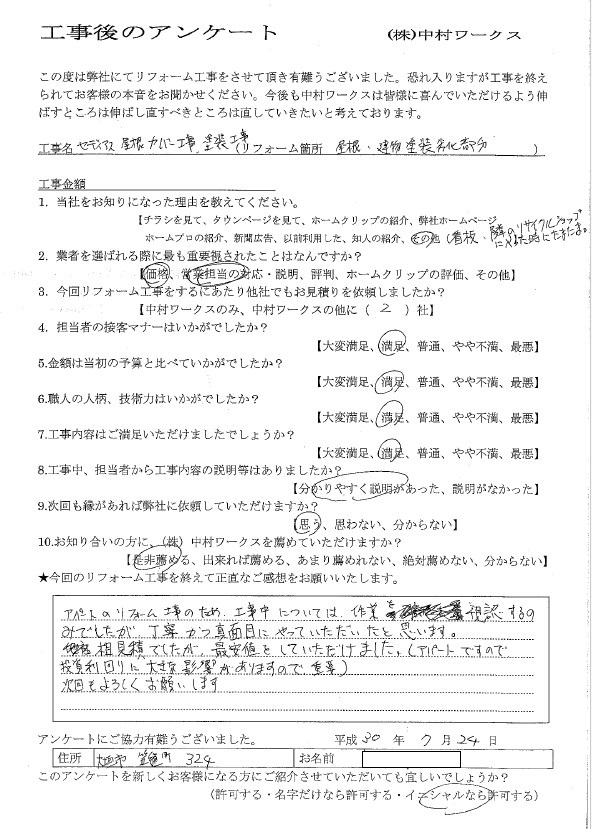 工事後のアンケート (株)中村ワークス
この度は弊社にてリフォーム工事をさせて頂き有難うございました。恐れ入りますが工事を終え
られてお客様の本音をお聞かせください。今後も中村ワークスは皆様に喜んでいただけるよう伸
ばすところは伸ばし直すべきところは直していきたいと考えております。
工事名 屋根カバー工事、塗装工事 (リフォーム箇所 屋根・建物塗装劣化部分 )
工事金額
1. 当社をお知りになった理由を教えてください。
【チラシを見て、タウンページを見て、ホームクリップの紹介、弊社ホームページ、
ホームプロの紹介、新聞広告、以前利用した、知人の紹介、その他(看板・隣のリサイクルショップ
2. 業者を選ばれる際に最も重要視されたことはなんですか?
【価格、営業担当の対応・説明、評判、ホームクリップの評価、その他】
3. 今回リフォーム工事をするにあたり他社でもお見積りを依頼しましたか?
【中村ワークスのみ、中村ワークスの他に( 2 )社】
4. 担当者の接客マナーはいかがでしたか?
【大変満足、満足、普通、やや不満、最悪】
5.金額は当初の予算と比べていかがでしたか?
【大変満足、満足、普通、やや不満、最悪】
6.職人の人柄、技術力はいかがでしたか?
【大変満足、満足、普通、やや不満、最悪】
7.工事内容はご満足いただけましたでしょうか?
【大変満足、満足、普通、やや不満、最悪】
8.工事中、担当者から工事内容の説明等はありましたか?
【分かりやすく説明があった、説明がなかった】
9.次回も縁があれば弊社に依頼していただけますか?
【思う、思わない、分からない】
10.お知り合いの方に、(株)中村ワークスを薦めていただけますか?
【是非薦める、出来れば薦める、あまり薦めれない、絶対薦めない、分からない】
★今回のリフォーム工事を終えて正直なご感想をお願いいたします。
アパートのリフォーム工事のため、工事中については、作業を視認するの
みでしたが、丁寧かつ真面目にやっていただいたと思います。
相見積でしたが、最安値をしていただけました。(アパートですので
投資利回りに大きな影響がありますので重要)
次回もよろしくお願いします
アンケートにご協力有難うございました。 平成 30 年 7 月 24 日
住所 324 お名前
このアンケートを新しくお客様になる方にご紹介させていただいても宜しいでしょうか?
(許可する・名字だけなら許可する・イニシャルなら許可する)